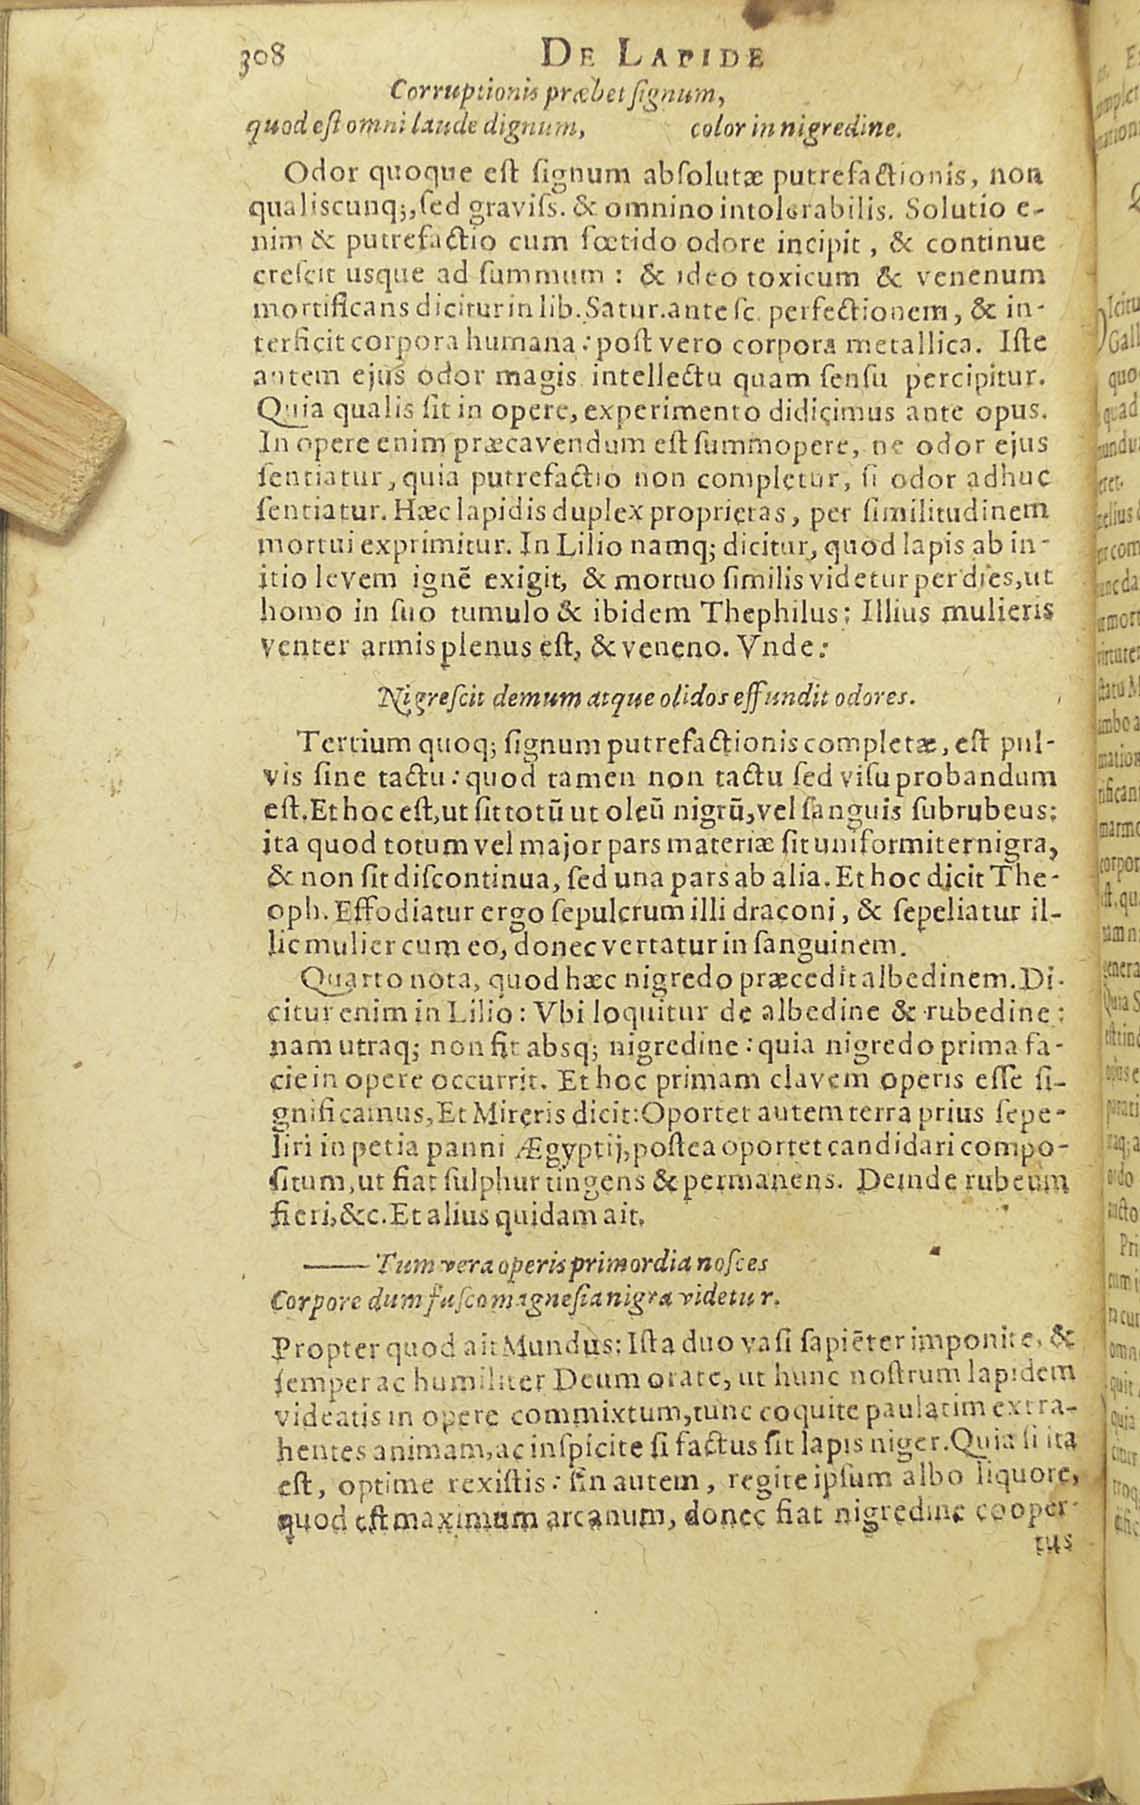 308 DE LAPIDE
Corruptionis præbet ſignum,
quod eſt omni laude dignum, color in nigredine.
Odor quoque eſt ſignum abſolutæ putrefactionis, non
qualiscunq;, ſed graviſs. & omnino intolerabilis. Solutio e-
nim & putrefactio cum fœtido odore incipit, & continue
creſcit usque ad ſummum: & ideo toxicum & venenum
mortificans dicitur in lib. Satur. ante ſc. perfectionem, & in-
terficit corpora humana: poſt vero corpora metallica. Iſte
autem ejus odor magis intellectu quam ſenſu percipitur.
Quia qualis ſit in opere, experimento didicimus ante opus.
In opere enim præcavendum eſt ſummopere, ne odor ejus
ſentiatur, quia putrefactio non completur, ſi odor adhuc
ſentiatur. Hæc lapidis duplex proprietas, per ſimilitudinem
mortui exprimitur. In Lilio namq; dicitur, quod lapis ab in-
itio levem ignē exigit, & mortuo ſimilis videtur per dies, ut
homo in ſuo tumulo & ibidem Thephilus: Illius mulieris
venter armis plenus eſt, & veneno. Vnde:
Nigreſcit demum atque olidos effundit odores.
Tertium quoq; ſignum putrefactionis completæ, eſt pul-
vis ſine tactu: quod tamen non tactu ſed viſu probandum
eſt. Et hoc eſt, ut ſit totū ut oleū nigrū, vel ſanguis ſubrubeus:
ita quod totum vel major pars materiæ ſit uniformiter nigra,
& non ſit diſcontinua, ſed una pars ab alia. Et hoc dicit The-
oph. Effodiatur ergo ſepulcrum illi draconi, & ſepeliatur il-
lic mulier cum eo, donec vertatur in ſanguinem.
Quarto nota, quod hæc nigredo præcedit albedinem. Di-
citur enim in Lilio: Vbi loquitur de albedine & rubedine:
nam utraq; non fit absq; nigredine: quia nigredo prima fa-
cie in opere occurrit. Et hoc primam clavem operis eſſe ſi-
gnificamus, Et Mireris dicit: Oportet autem terra prius ſepe-
liri in petia panni Ægyptij, poſtea oportet candidari compo-
ſitum, ut fiat ſulphur tingens & permanens. Deinde rubeum
fieri, &c. Et alius quidam ait.
—— Tum vera operis primordia noſces
Corpore dum fuſco magneſia nigra videtur.
Propter quod ait Mundus: Iſta duo vaſi ſapiēter imponite, &
ſemper ac humiliter Deum orate, ut hunc noſtrum lapidem
videatis in opere commixtum, tunc coquite paulatim extra-
hentes animam, ac inſpicite ſi factus ſit lapis niger. Quia ſi ita
eſt, optime rexiſtis: ſin autem, regite ipſum albo liquore,
quod eſt maximum arcanum, donec fiat nigredine cooper-
tus